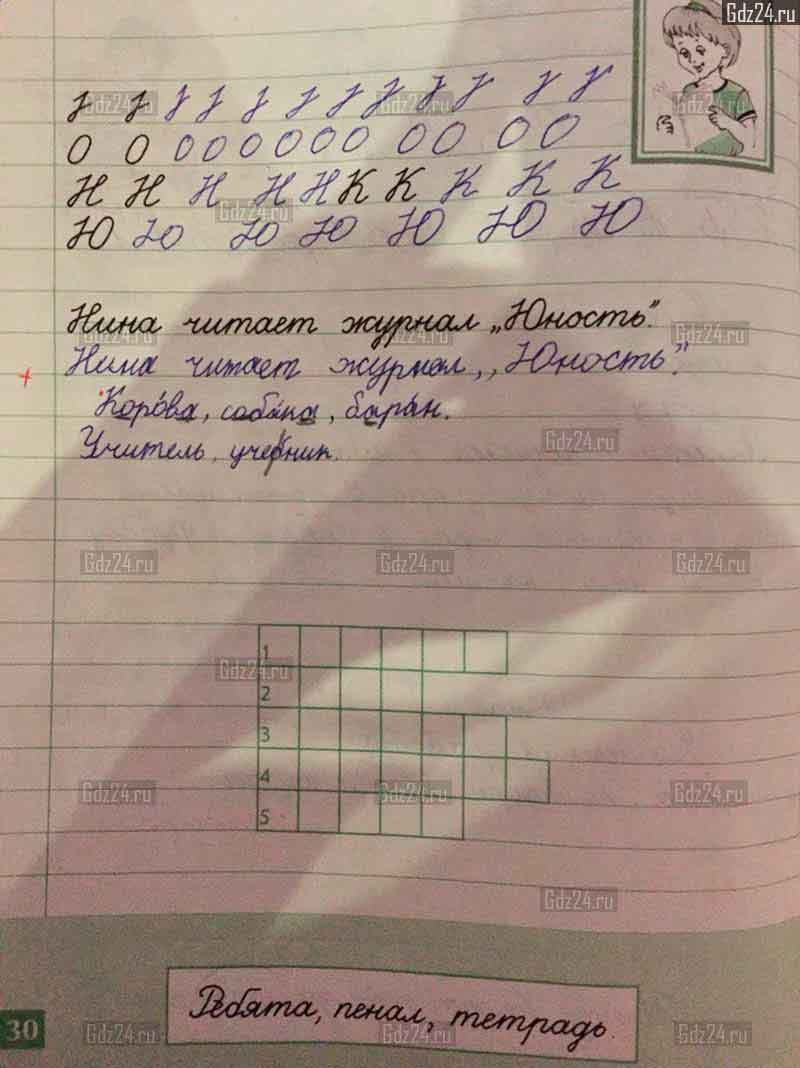 Gdz24.ru
О О О О О О О О О О О О
Н Н Н Н Н К К К К К
Ю Ю Ю Ю Ю Ю Ю
Нина читает журнал „Юность".
Нина читает журнал „Юность".
Корова, собака, баран.
Учитель, учебник.
1
2
3
4
5
Ребята, пенал, тетрадь.
30